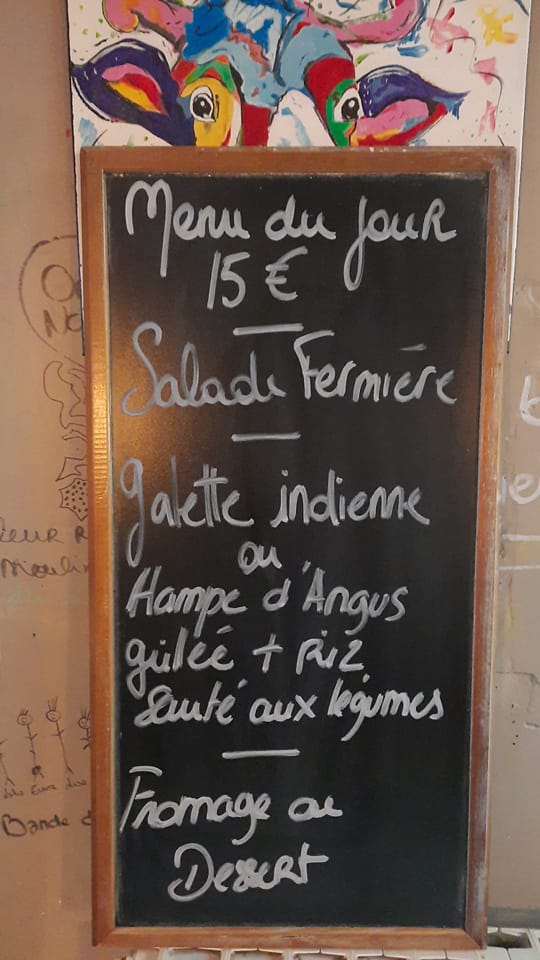 Menu du jouR
15 €
Salade Fermière
galette indienne
ou
Hampe d'Angus
grillée + Riz
sauté aux légumes
Fromage ou
Dessert
Bande d